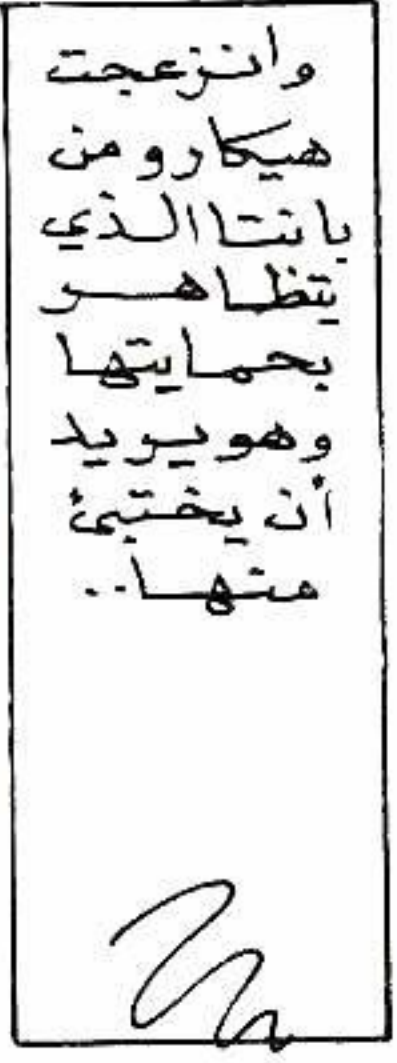 وانزعجت
هيكارو من
بانتا الذي
يتظاهر
بحمايتها
وهو يريد
أن يختبئ
منها..